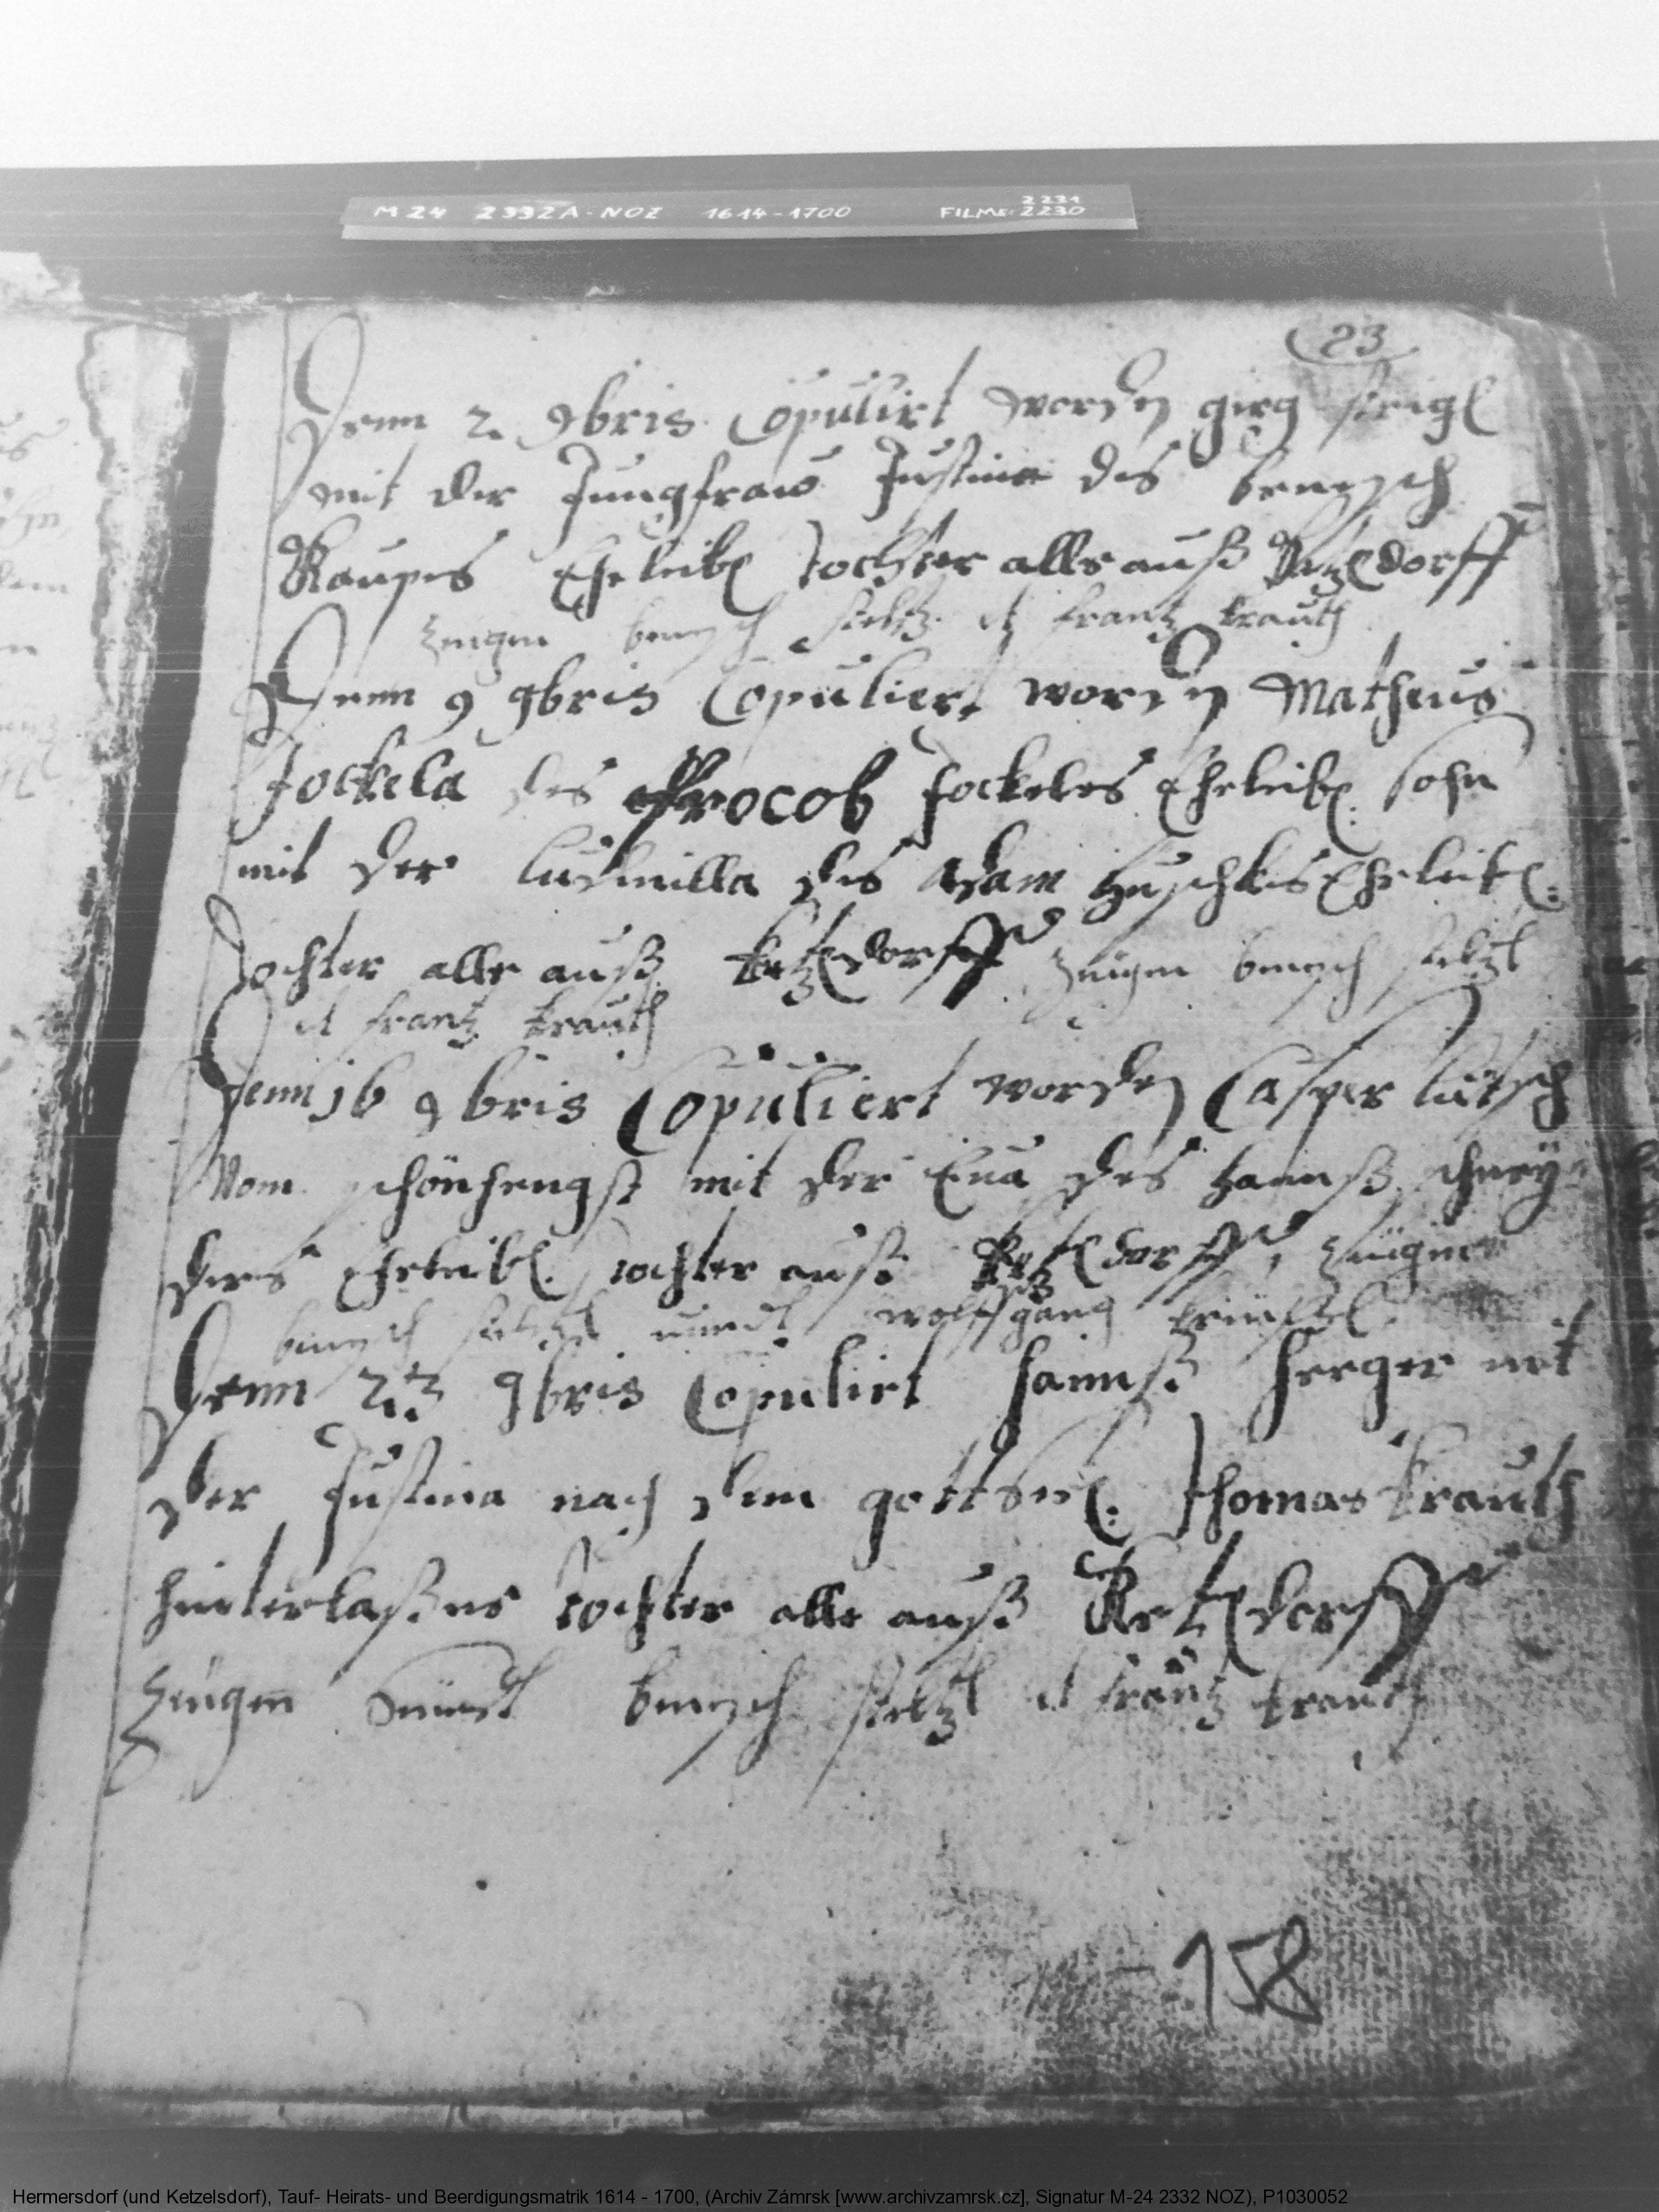 M 24 2332A-NOZ 1614-1700 FILME: 2231 2230
23
Denn 2. 9bris Copulirt worden girg
mit der Jungfraw Justina des benesch
Raupes Eheleibl tochter alle auß Ketzldorff
Zeugen benesch steltz et frantz krauth
Denn 9 9bris Copuliert worden Matheus
Jockela des Procob Jockeles Eheleibl. sohn
mit der ludmilla des Adam Huschkes Eheleibl:
Tochter alle auß Ketzldorff Zeugen benesch steltzl
et frantz krauth
Denn 16 9bris Copuliert worden Casper lutsch
Vom schönhengst mit der Eua des Hannß schney-
ders Eheleibl. Tochter auß Ketzldorff, Zeugen
benesch steltzl undt wolffgang
Denn 23 9bris Copulirt hannß herger mit
der Justina nach dem gott seel: Thomas Krauth
hinterlaßene Tochter alle auß Ketzldorff
Zeugen seindt benesch steltzl et frantz krauth
158
Hermersdorf (und Ketzelsdorf), Tauf- Heirats- und Beerdigungsmatrik 1614 - 1700, (Archiv Zámrsk [www.archivzamrsk.cz], Signatur M-24 2332 NOZ), P1030052